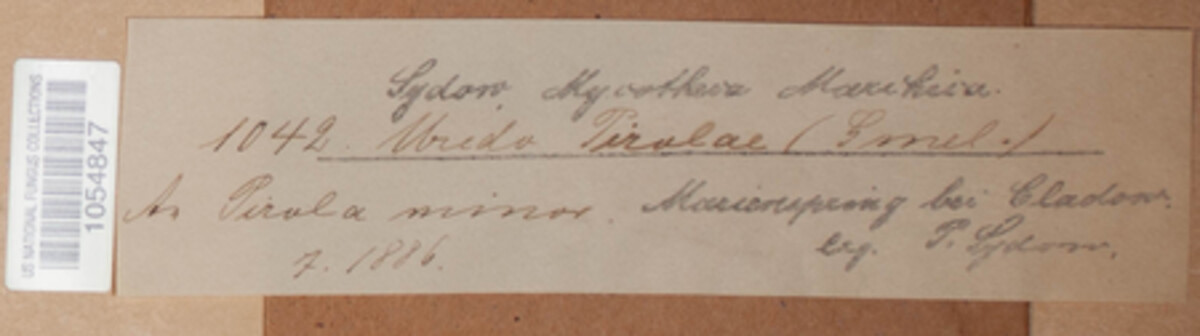 US NATIONAL FUNGUS COLLECTIONS
1054847
Sydow, Mycotheca Marchica.
1042. Uredo Pirolae (Gmel.)
An Pirola minor. Marienspring bei Cladow.
7. 1886. leg. P. Sydow.